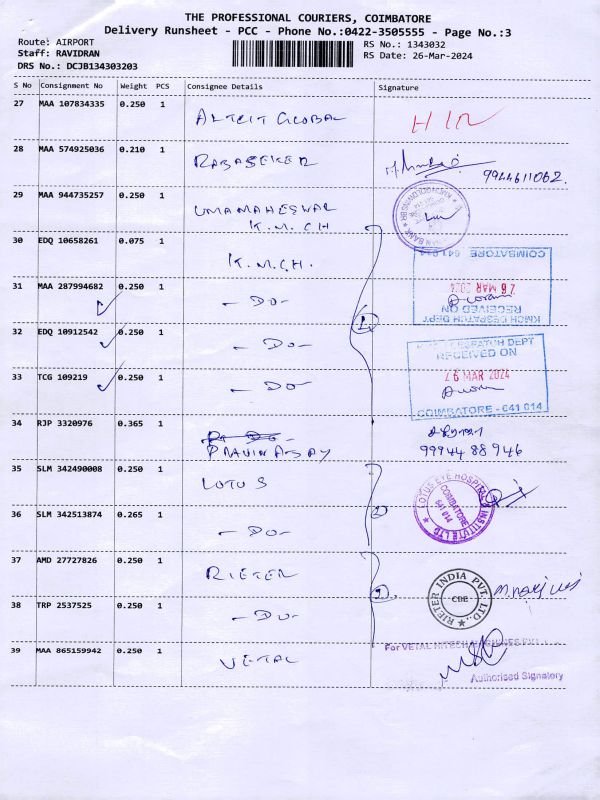 THE PROFESSIONAL COURIERS, COIMBATORE
Delivery Runsheet - PCC - Phone No.:0422-3505555 - Page No.:3
Route: AIRPORT
Staff: RAVIDRAN
DRS No.: DCJB134303203
RS No.: 1343032
RS Date: 26-Mar-2024
S No Consignment No Weight PCS Consignee Details Signature
27 MAA 107834335 0.250 1 GLOBAL
28 MAA 574925036 0.210 1
9944611062.
29 MAA 944735257 0.250 1 UMAMAHESWAR
K.M.C.H
30 EDQ 10658261 0.075 1 K.M.C.H.
COIMBATORE - 641 014
26 MAR 2024
RECEIVED ON
KMCH DESPATCH DEPT
31 MAA 287994682 0.250 1 - DO -
32 EDQ 10912542 0.250 1 - DO -
DESPATCH DEPT
RECEIVED ON
26 MAR 2024
COIMBATORE - 641 014
33 TCG 109219 0.250 1 - DO -
34 RJP 3320976 0.365 1
99944 88 946
35 SLM 342490008 0.250 1 LOTUS
LOTUS EYE HOSPITAL & INSTITUTE LTD
COIMBATORE
641 014
36 SLM 342513874 0.265 1 - DO -
37 AMD 27727826 0.250 1 RIETER
RIETER INDIA PVT. LTD.
CBE
38 TRP 2537525 0.250 1 - DO -
39 MAA 865159942 0.250 1 VETAL
For VETAL HITECH MACHINES PVT.
Authorised Signatory